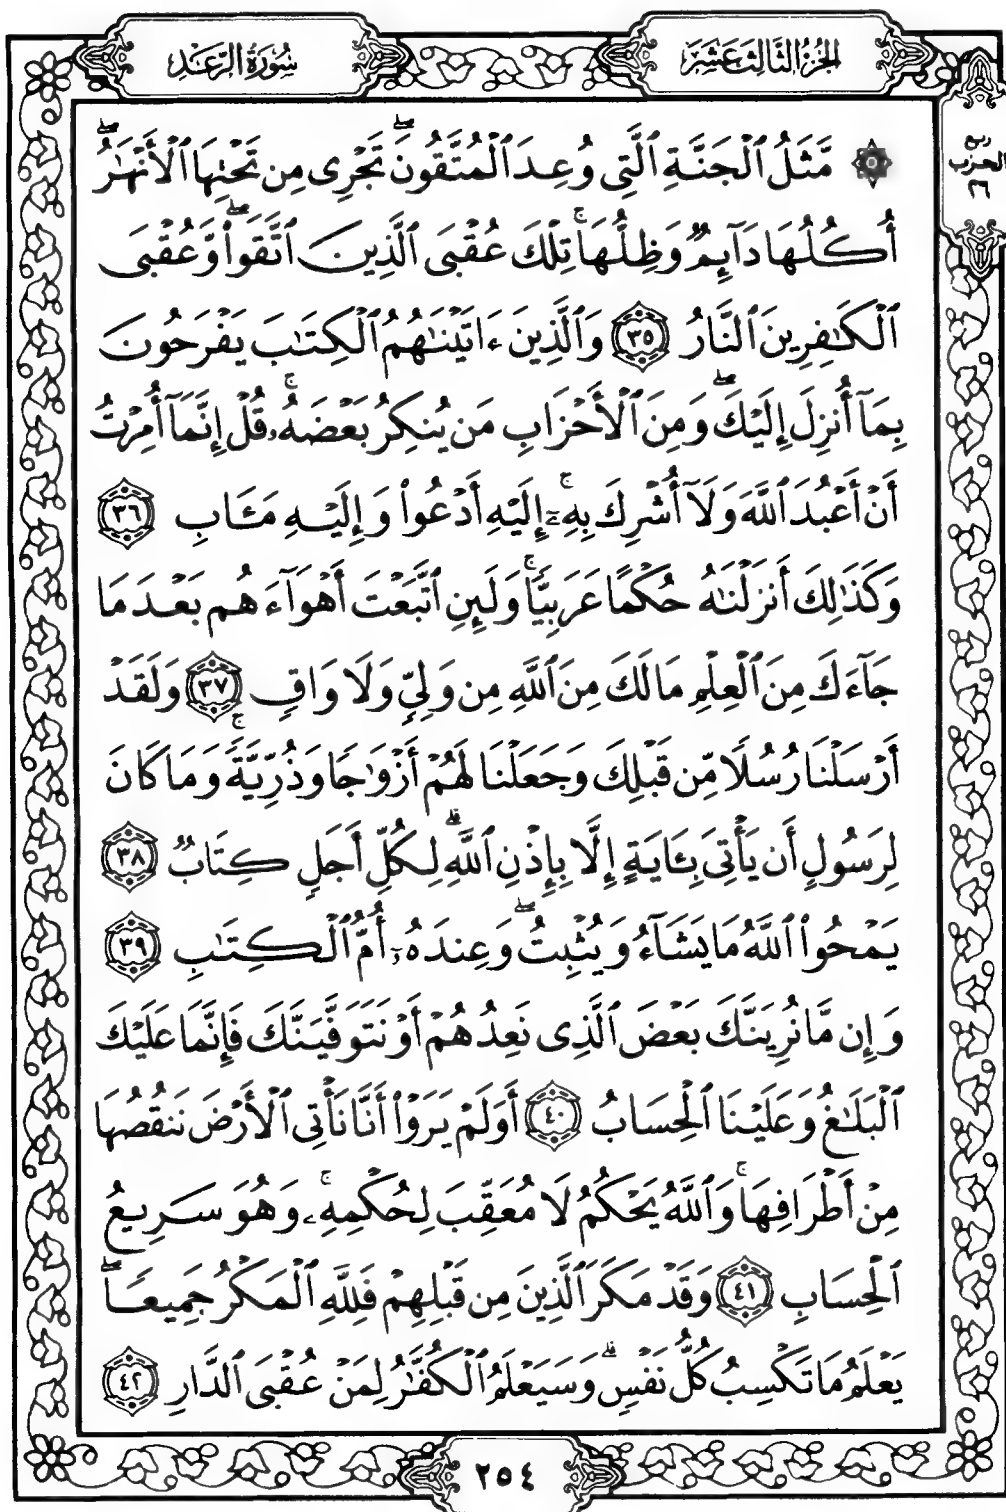 الجزء الثالث عشر
سورة الرعد
ربع
الحزب
٢٦
۞ مَّثَلُ ٱلْجَنَّةِ ٱلَّتِى وُعِدَ ٱلْمُتَّقُونَۖ تَجْرِى مِن تَحْتِهَا ٱلْأَنْهَٰرُۖ
أُكُلُهَا دَآئِمٌ وَظِلُّهَاۚ تِلْكَ عُقْبَى ٱلَّذِينَ ٱتَّقَوا۟ۖ وَّعُقْبَى
ٱلْكَٰفِرِينَ ٱلنَّارُ ٣٥ وَٱلَّذِينَ ءَاتَيْنَٰهُمُ ٱلْكِتَٰبَ يَفْرَحُونَ
بِمَآ أُنزِلَ إِلَيْكَۖ وَمِنَ ٱلْأَحْزَابِ مَن يُنكِرُ بَعْضَهُۥۚ قُلْ إِنَّمَآ أُمِرْتُ
أَنْ أَعْبُدَ ٱللَّهَ وَلَآ أُشْرِكَ بِهِۦٓۚ إِلَيْهِ أَدْعُوا۟ وَإِلَيْهِ مَـَٔابِ ٣٦
وَكَذَٰلِكَ أَنزَلْنَٰهُ حُكْمًا عَرَبِيًّاۚ وَلَئِنِ ٱتَّبَعْتَ أَهْوَآءَهُم بَعْدَمَا
جَآءَكَ مِنَ ٱلْعِلْمِ مَالَكَ مِنَ ٱللَّهِ مِن وَلِىٍّ وَلَا وَاقٍ ٣٧ وَلَقَدْ
أَرْسَلْنَا رُسُلًا مِّن قَبْلِكَ وَجَعَلْنَا لَهُمْ أَزْوَٰجًا وَذُرِّيَّةًۚ وَمَا كَانَ
لِرَسُولٍ أَن يَأْتِىَ بِـَٔايَةٍ إِلَّا بِإِذْنِ ٱللَّهِۗ لِكُلِّ أَجَلٍ كِتَابٌ ٣٨
يَمْحُوا۟ ٱللَّهُ مَا يَشَآءُ وَيُثْبِتُۖ وَعِندَهُۥٓ أُمُّ ٱلْكِتَٰبِ ٣٩
وَإِن مَّا نُرِيَنَّكَ بَعْضَ ٱلَّذِى نَعِدُهُمْ أَوْ نَتَوَفَّيَنَّكَ فَإِنَّمَا عَلَيْكَ
ٱلْبَلَٰغُ وَعَلَيْنَا ٱلْحِسَابُ ٤٠ أَوَلَمْ يَرَوْا۟ أَنَّا نَأْتِى ٱلْأَرْضَ نَنقُصُهَا
مِنْ أَطْرَافِهَاۚ وَٱللَّهُ يَحْكُمُ لَا مُعَقِّبَ لِحُكْمِهِۦۚ وَهُوَ سَرِيعُ
ٱلْحِسَابِ ٤١ وَقَدْ مَكَرَ ٱلَّذِينَ مِن قَبْلِهِمْ فَلِلَّهِ ٱلْمَكْرُ جَمِيعًاۖ
يَعْلَمُ مَا تَكْسِبُ كُلُّ نَفْسٍۗ وَسَيَعْلَمُ ٱلْكُفَّٰرُ لِمَنْ عُقْبَى ٱلدَّارِ ٤٢
٢٥٤